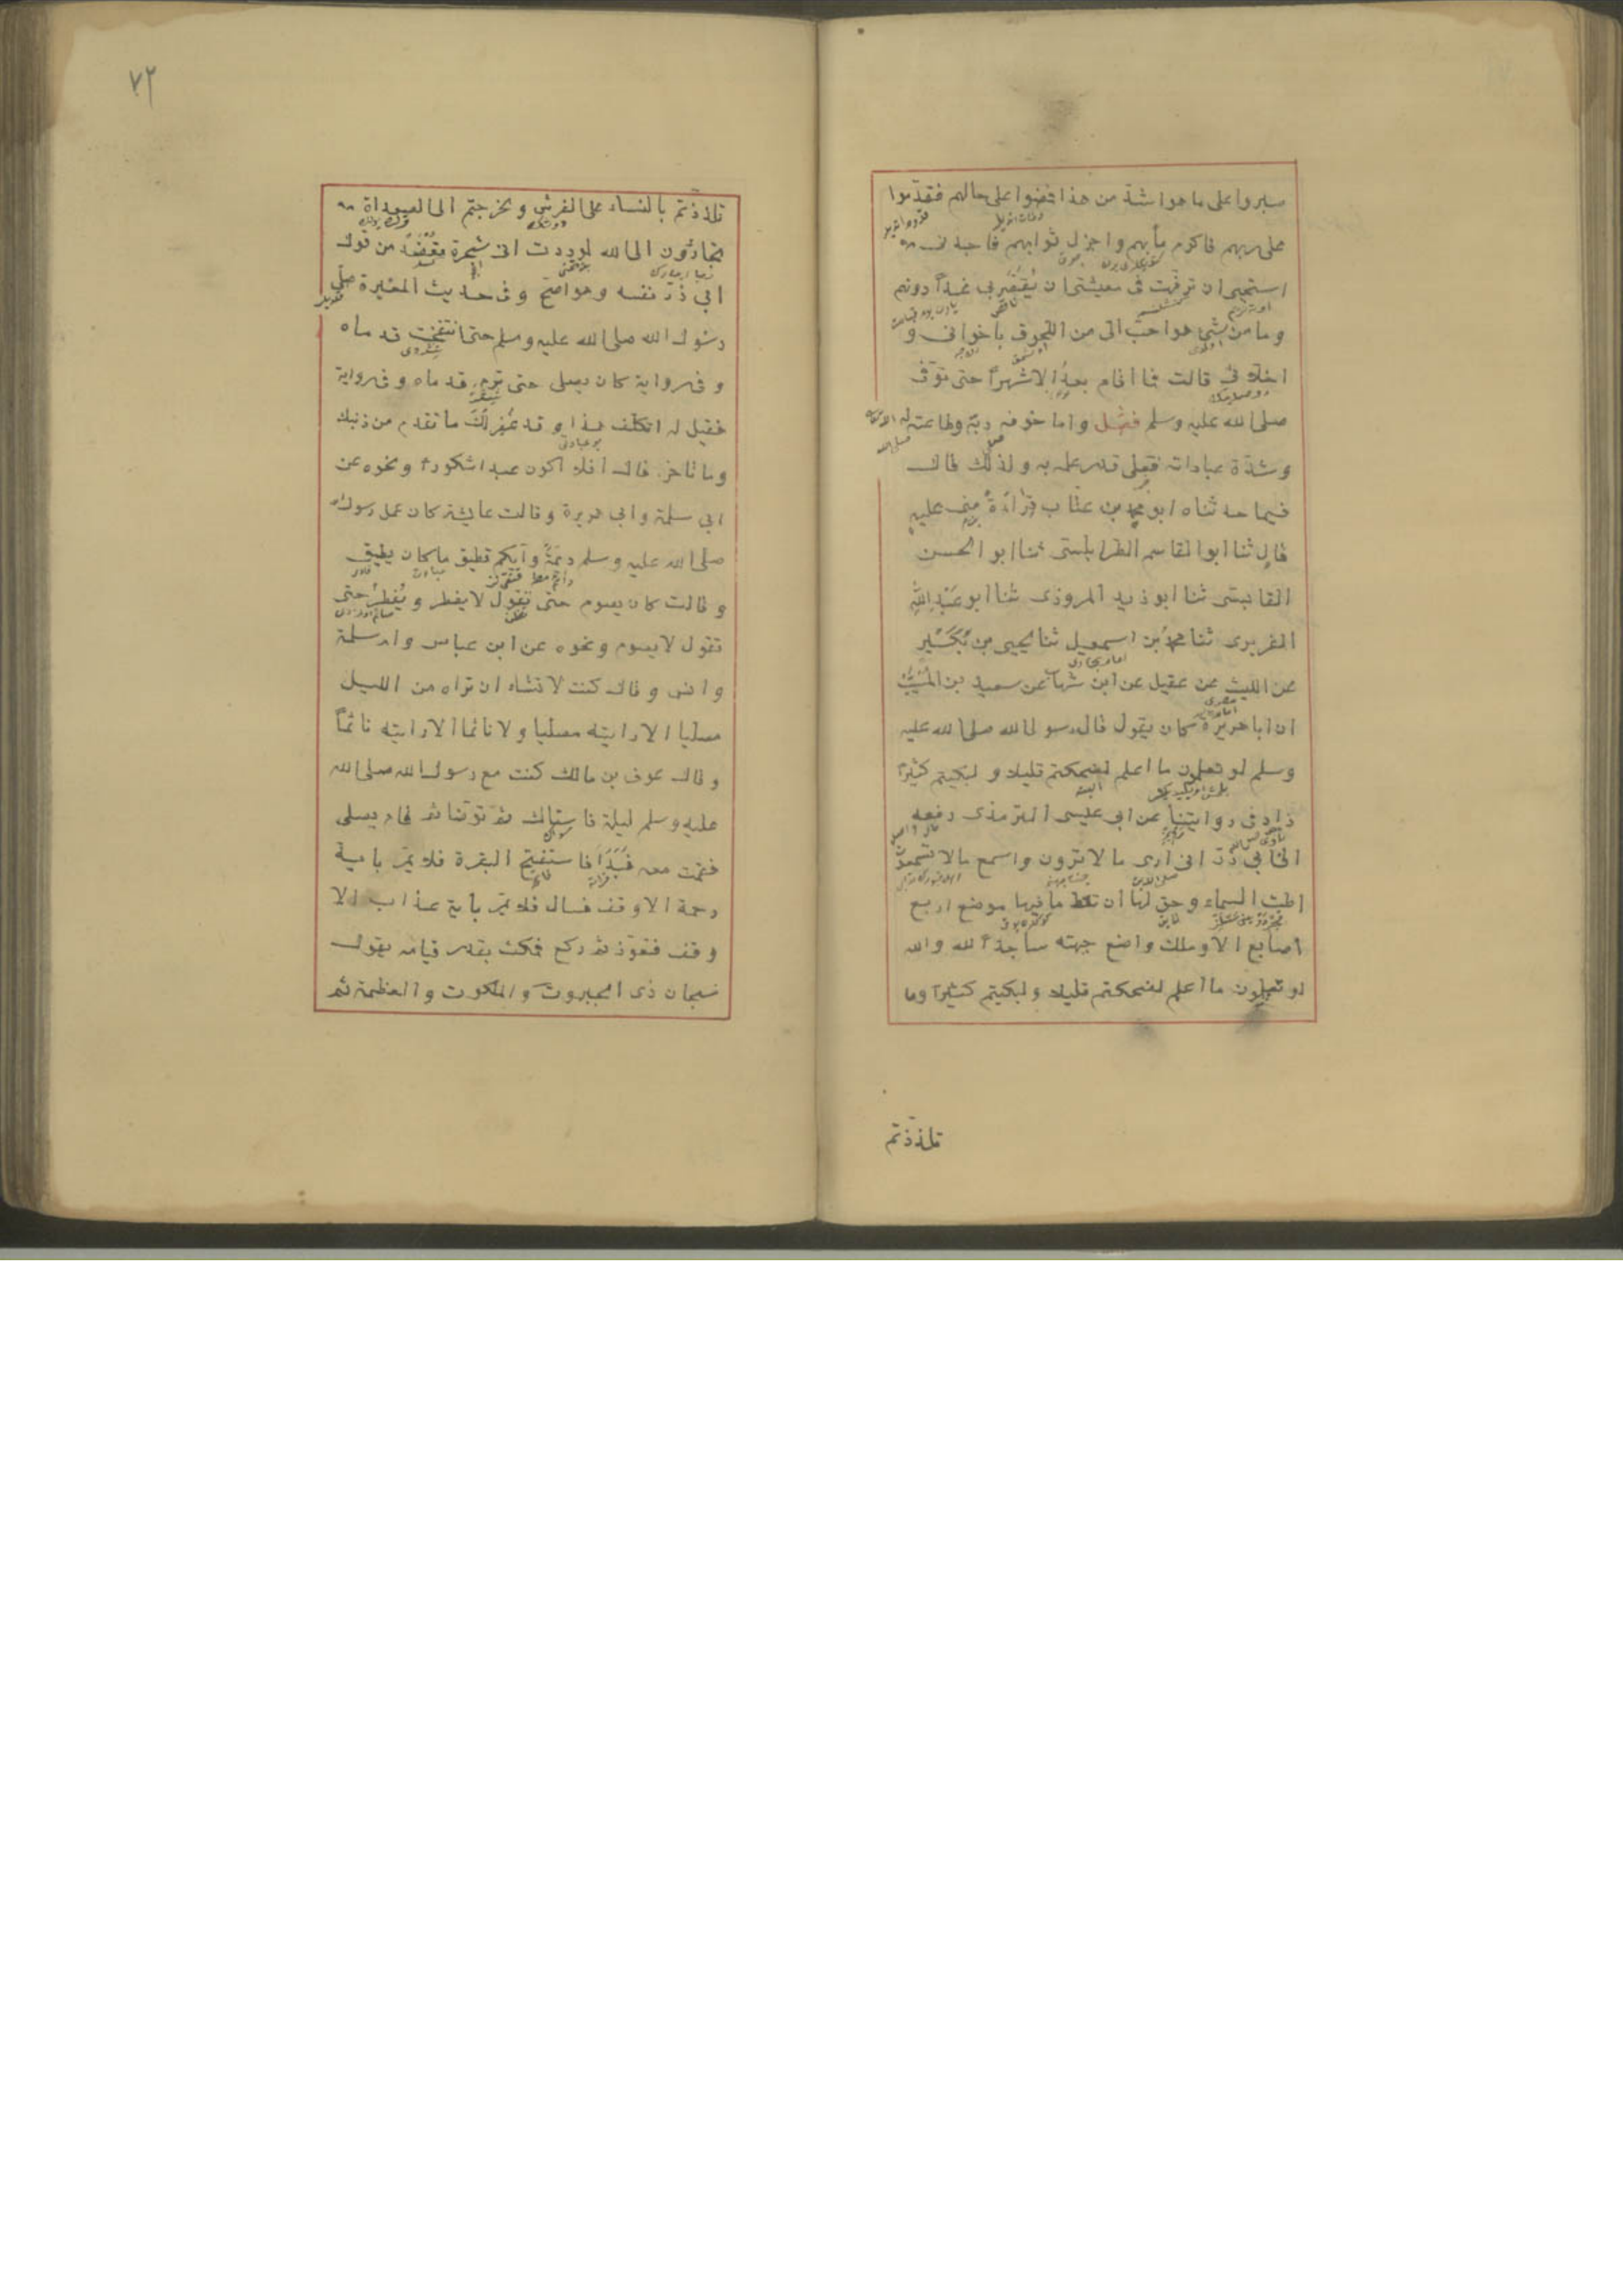 صبروا على ما هو اشدّ من هذا فمضوا على حالهم فقدّموا
على ربهم فاكرم مأبهم واجزل ثوابهم فاجدنى
استحيى ان ترفّهت فى معيشتى ان يُقصَّر بى غداً دونهم
وما من شئ هو احبّ الىّ من اللحوق باخوانى و
اخلّائى قالت فما اقام بعدُ الا شهراً حتى توفى
صلى الله عليه وسلم فصل واما خوفه ربّه وطاعته له
وشدّة عبادته فعلى قدر علمه به ولذلك قال
فيما حدثناه ابو محمد بن عتّاب قراءةً منى عليه
قال ثنا ابو القاسم الطرابلسى ثنا ابو الحسن
القابسى ثنا ابو زيد المروذى ثنا ابو عبد الله
الفربرى ثنا محمد بن اسمعيل ثنا يحيى بن بكير
عن الليث عن عقيل عن ابن شهاب عن سعيد بن المسيّب
ان ابا هريرة كان يقول قال رسول الله صلى الله عليه
وسلم لو تعلمون ما اعلم لضحكتم قليلا ولبكيتم كثيرًا
زاد فى روايتنا عن ابى عيسى الترمذى رفعه
الى ابى ذرّ انى ارى ما لا ترون واسمع ما لا تسمعون
اطت السماء وحق لها ان تئط ما فيها موضع اربع
اصابع الا وملك واضع جبهته ساجداً لله والله
لو تعلمون ما اعلم لضحكتم قليلا ولبكيتم كثيرا وما
تلذذتم
٧٢
تلذذتم بالنساء على الفرش ولخرجتم الى الصعدات
تجأرون الى الله لوددت انى شجرة تعضد من قول
ابى ذرّ نفسه وهو اصح وفى حديث المغيرة صلّى
رسول الله صلى الله عليه وسلم حتى انتفخت قدماه
وفى رواية كان يصلى حتى ترم قدماه وفى رواية
فقيل له اتكلف هذا وقد غُفِر لكَ ما تقدم من ذنبك
وما تأخر قال افلا اكون عبدا شكورا ونحوه عن
ابى سلمة وابى هريرة وقالت عايشة كان عمل رسول الله
صلى الله عليه وسلم ديمَةً وايكم يطيق ما كان يطيق
وقالت كان يصوم حتى نقول لا يفطر ويُفطرُ حتى
نقول لا يصوم ونحوه عن ابن عباس وام سلمة
وانس وقال كنت لا تشاء ان تراه من الليل
مصليا الا رايته مصليا ولا نائما الا رايته نائماً
وقال عوف بن مالك كنت مع رسول الله صلى الله
عليه وسلم ليلة فاستاك ثم توضأ ثم قام يصلى
فقمت معه فَبَدَأَ فاستفتح البقرة فلا يمرّ بآية
رحمة الا وقف فسال فلا يمرّ بآية عذاب الا
وقف فتعوّذ ثم ركع فمكث بقدر قيامه يقول
سبحان ذى الجبروت والملكوت والعظمة ثم